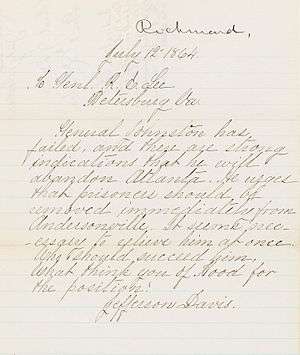 Richmond,
July 12 1864.
To Genl R. E. Lee
Petersburg Va
General Johnston has
failed, and there are strong
indications that he will
abandon Atlanta... He urges
that prisoners should be
removed immediately from
Andersonville, It seems nec-
essary to relieve him at once
Who should succeed him
What think you of Hood for
the position?
Jefferson Davis.